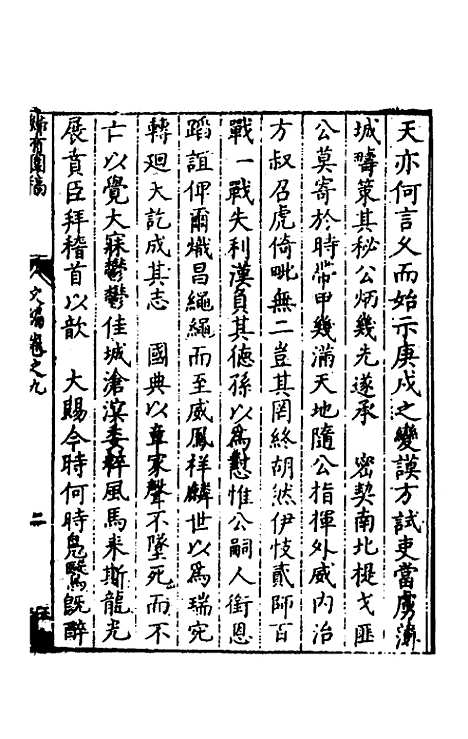 天亦何言久而始示庚戌之變謨方試吏當虜薄
城疇策其秘公炳幾先遂承　密契南北提戈匪
公莫寄於時帶甲幾滿天地隨公指揮外威內治
方叔召虎倚毗無二豈其罔終胡然伊忮貳師百
戰一戰失利漢負其德孫以為懟惟公嗣人銜恩
蹈誼俾爾熾昌繩繩而至威鳳祥麟世以為瑞宛
轉廻天訖成其志　國典以章家聲不墜死而不
亡以覺大寐鬱鬱佳城滄溟委粹風馬來斯龍光
展賁臣拜稽首以歆　大賜今時何時鳧鷖既醉
歸有園稿
文編卷之九
二